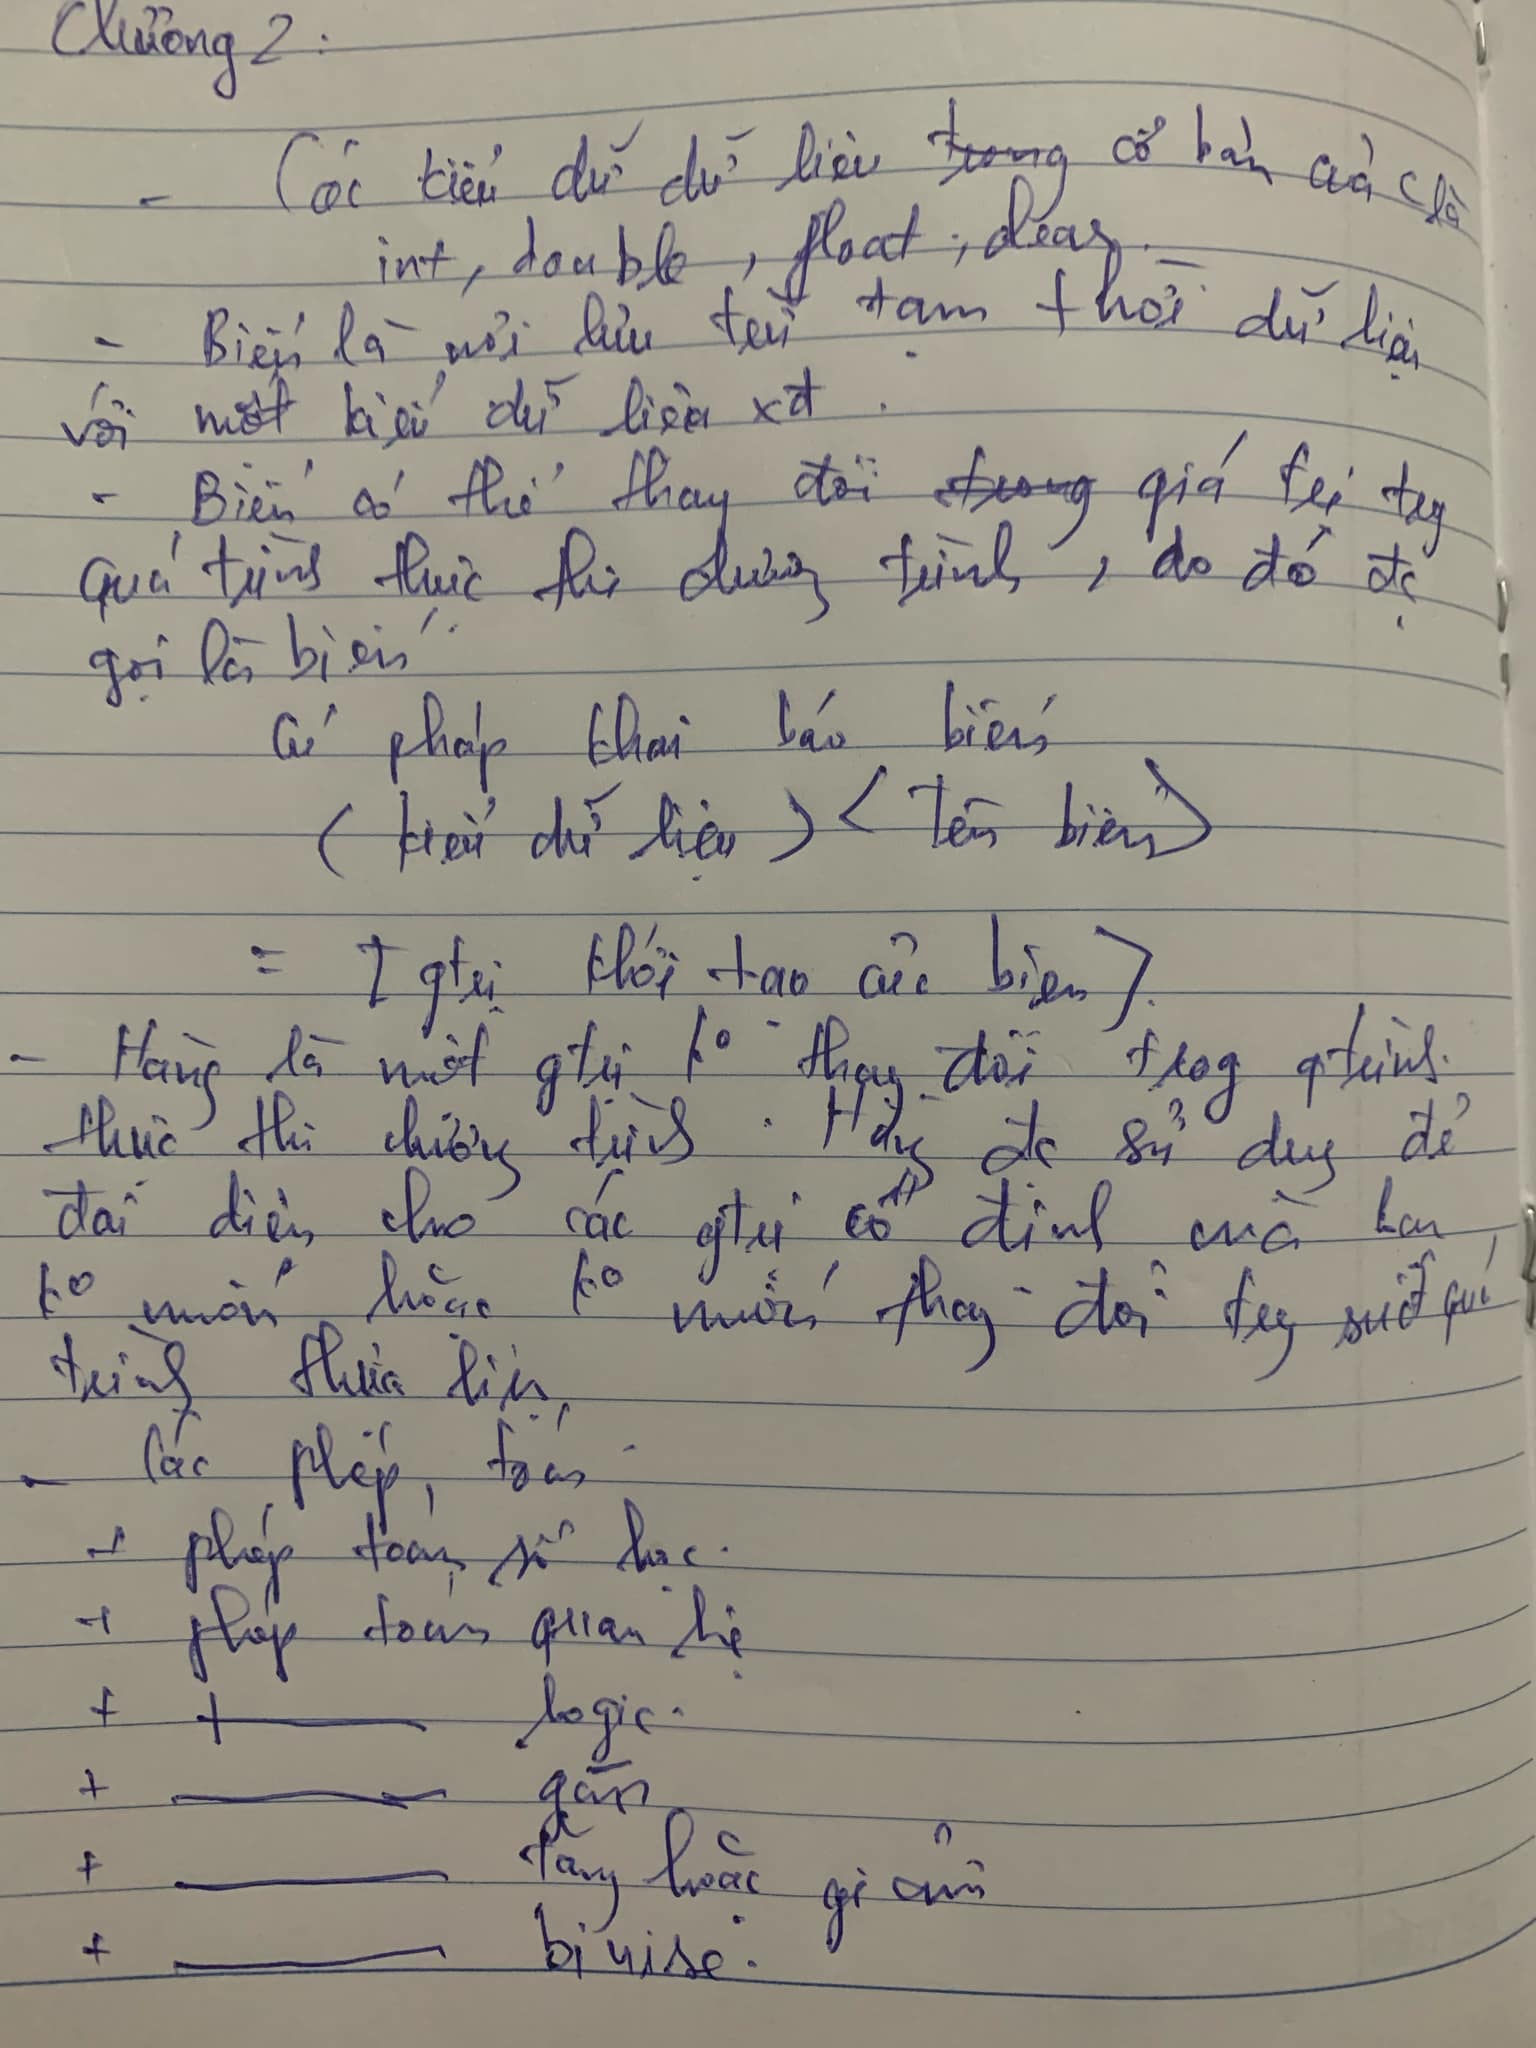 Chương 2:
- Các kiểu dữ dữ liệu trong cơ bản của C là
int, double, float, char.
- Biến là nơi lưu trữ tạm thời dữ liệu
với một kiểu dữ liệu xđ.
- Biến có thể thay đổi trong giá trị trg
quá trình thực thi chương trình, do đó đc
gọi là biến.
Cú pháp khai báo biến
(kiểu dữ liệu) <tên biến>
= [gtrị khởi tạo của biến].
- Hằng là một gtrị ko thay đổi trog qtrình
thực thi chương trình. Hằng đc sử dụng để
đại diện cho các gtrị cố định mà bạn
ko muốn hoặc ko muốn thay đổi trg suốt quá
trình thực hiện
- Các phép toán
+ phép toán số học.
+ phép toán quan hệ
+ logic.
+ gán
+ tăng hoặc giảm
+ bitwise.